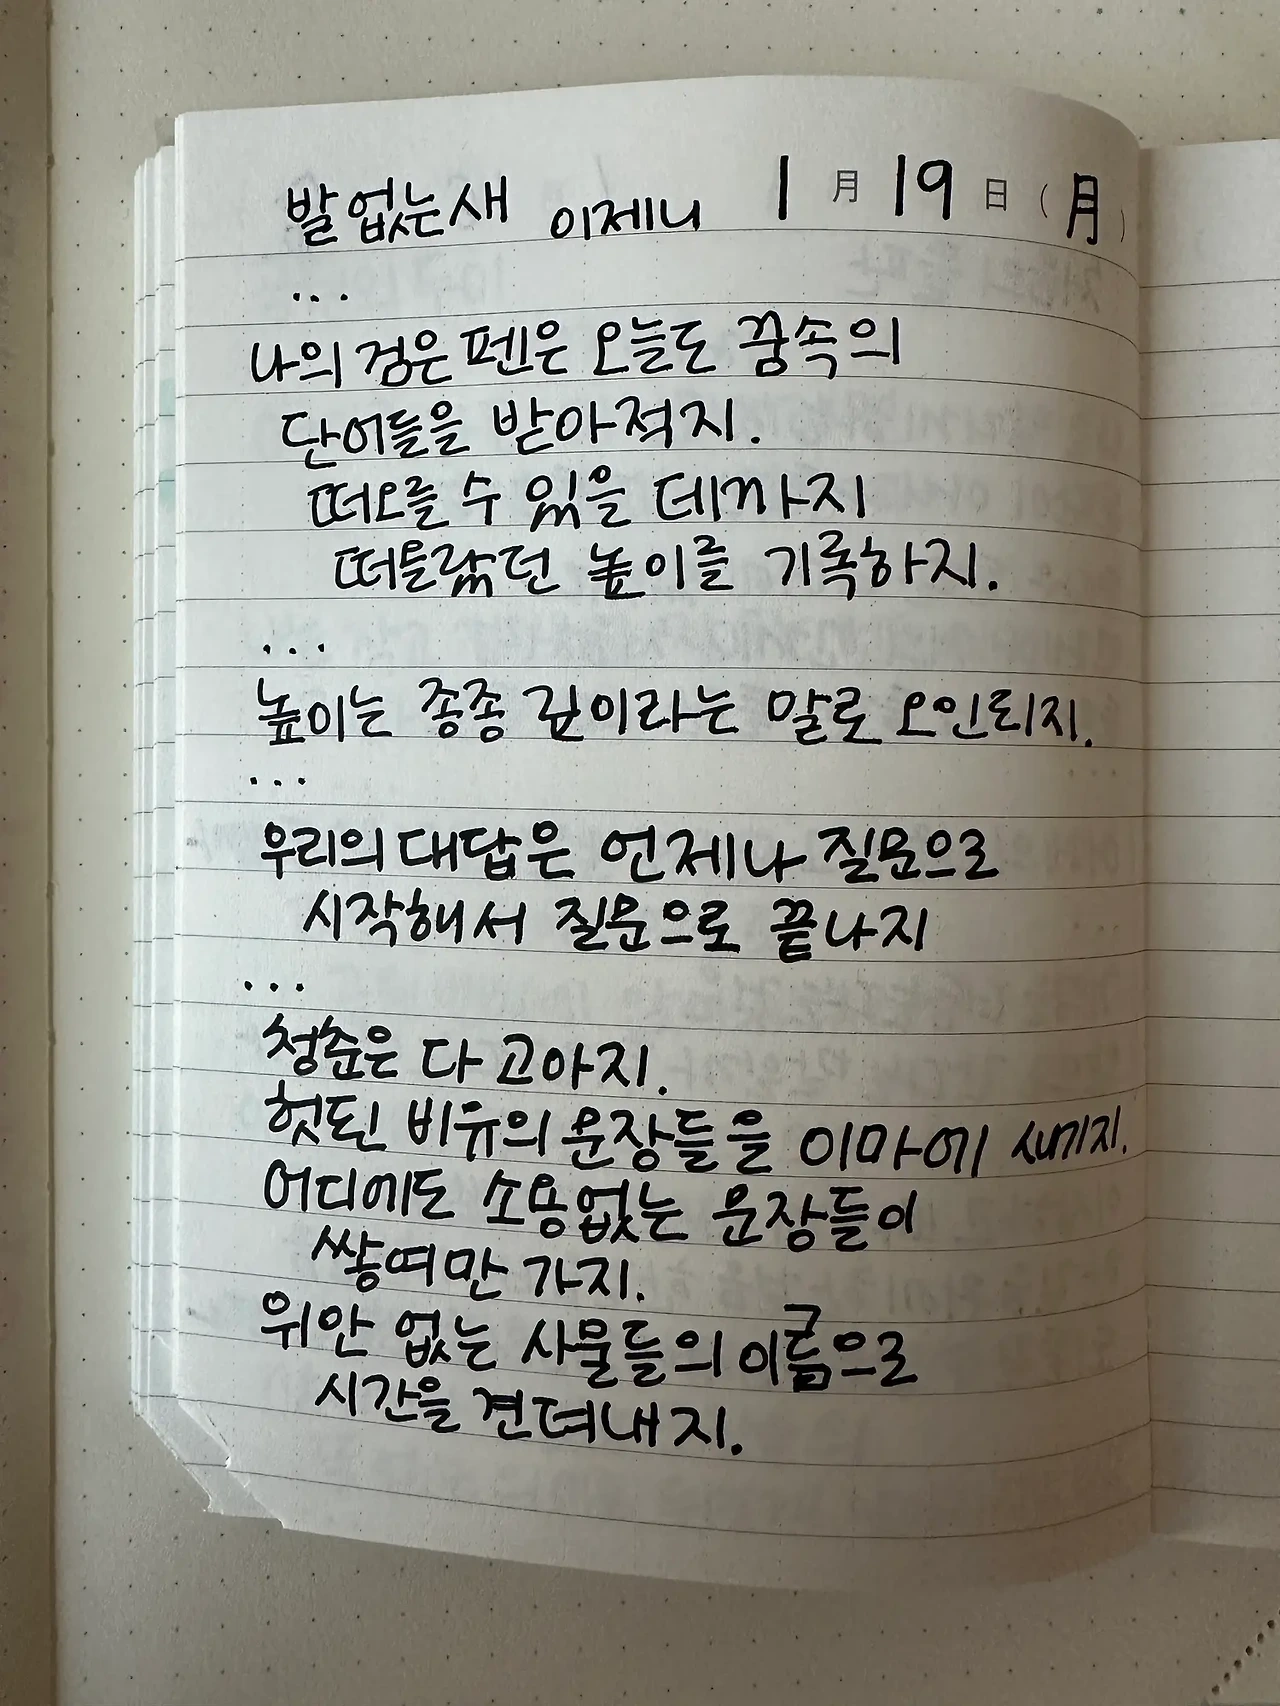 발 없는 새 이제니 1月 19日 (月)
...
나의 검은 펜은 오늘도 꿈속의
단어들을 받아적지.
떠오를 수 있을 데까지
떠올랐던 높이를 기록하지.
...
높이는 종종 깊이라는 말로 오인되지.
...
우리의 대답은 언제나 질문으로
시작해서 질문으로 끝나지
...
청춘은 다 고아지.
헛된 비유의 문장들을 이마에 새기지.
어디에도 소용없는 문장들이
쌓여만 가지.
위안 없는 사물들의 이름으로
시간을 견뎌내지.